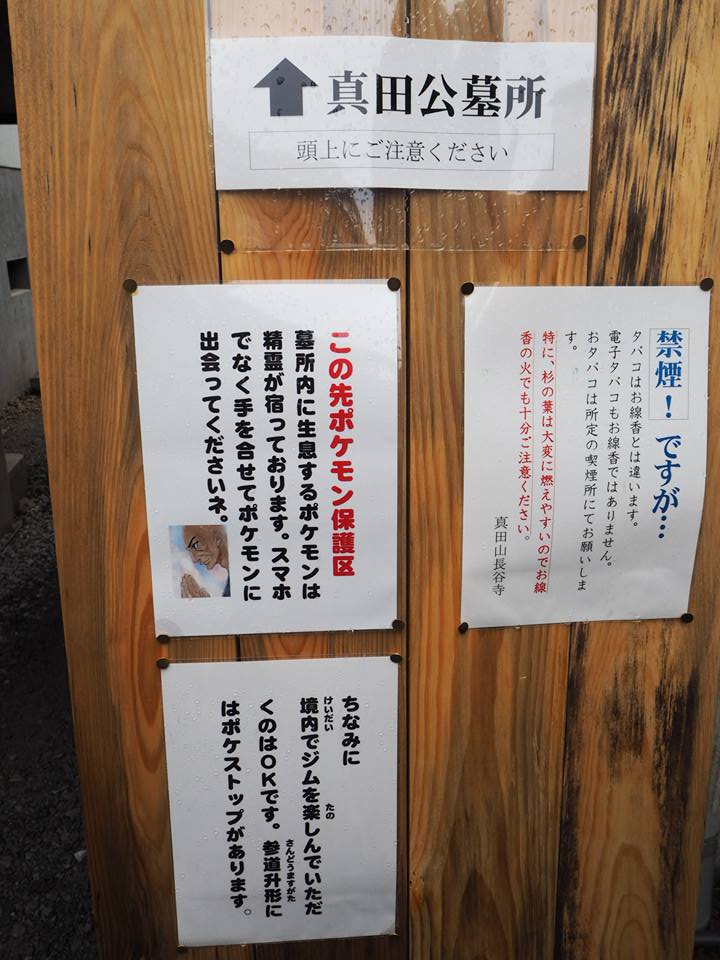 真田公墓所
頭上にご注意ください
禁煙！ですが…
タバコはお線香とは違います。
電子タバコもお線香ではありません。
おタバコは所定の喫煙所にてお願いしま
す。
特に、杉の葉は大変に燃えやすいのでお線
香の火でも十分ご注意ください。
真田山長谷寺
この先ポケモン保護区
墓所内に生息するポケモンは
精霊が宿っております。スマホ
でなく手を合せてポケモンに
出会ってくださいネ。
ちなみに
境内でジムを楽しんでいただ
けいだい
たの
くのはOKです。参道升形に
さんどうますがた
はポケストップがあります。